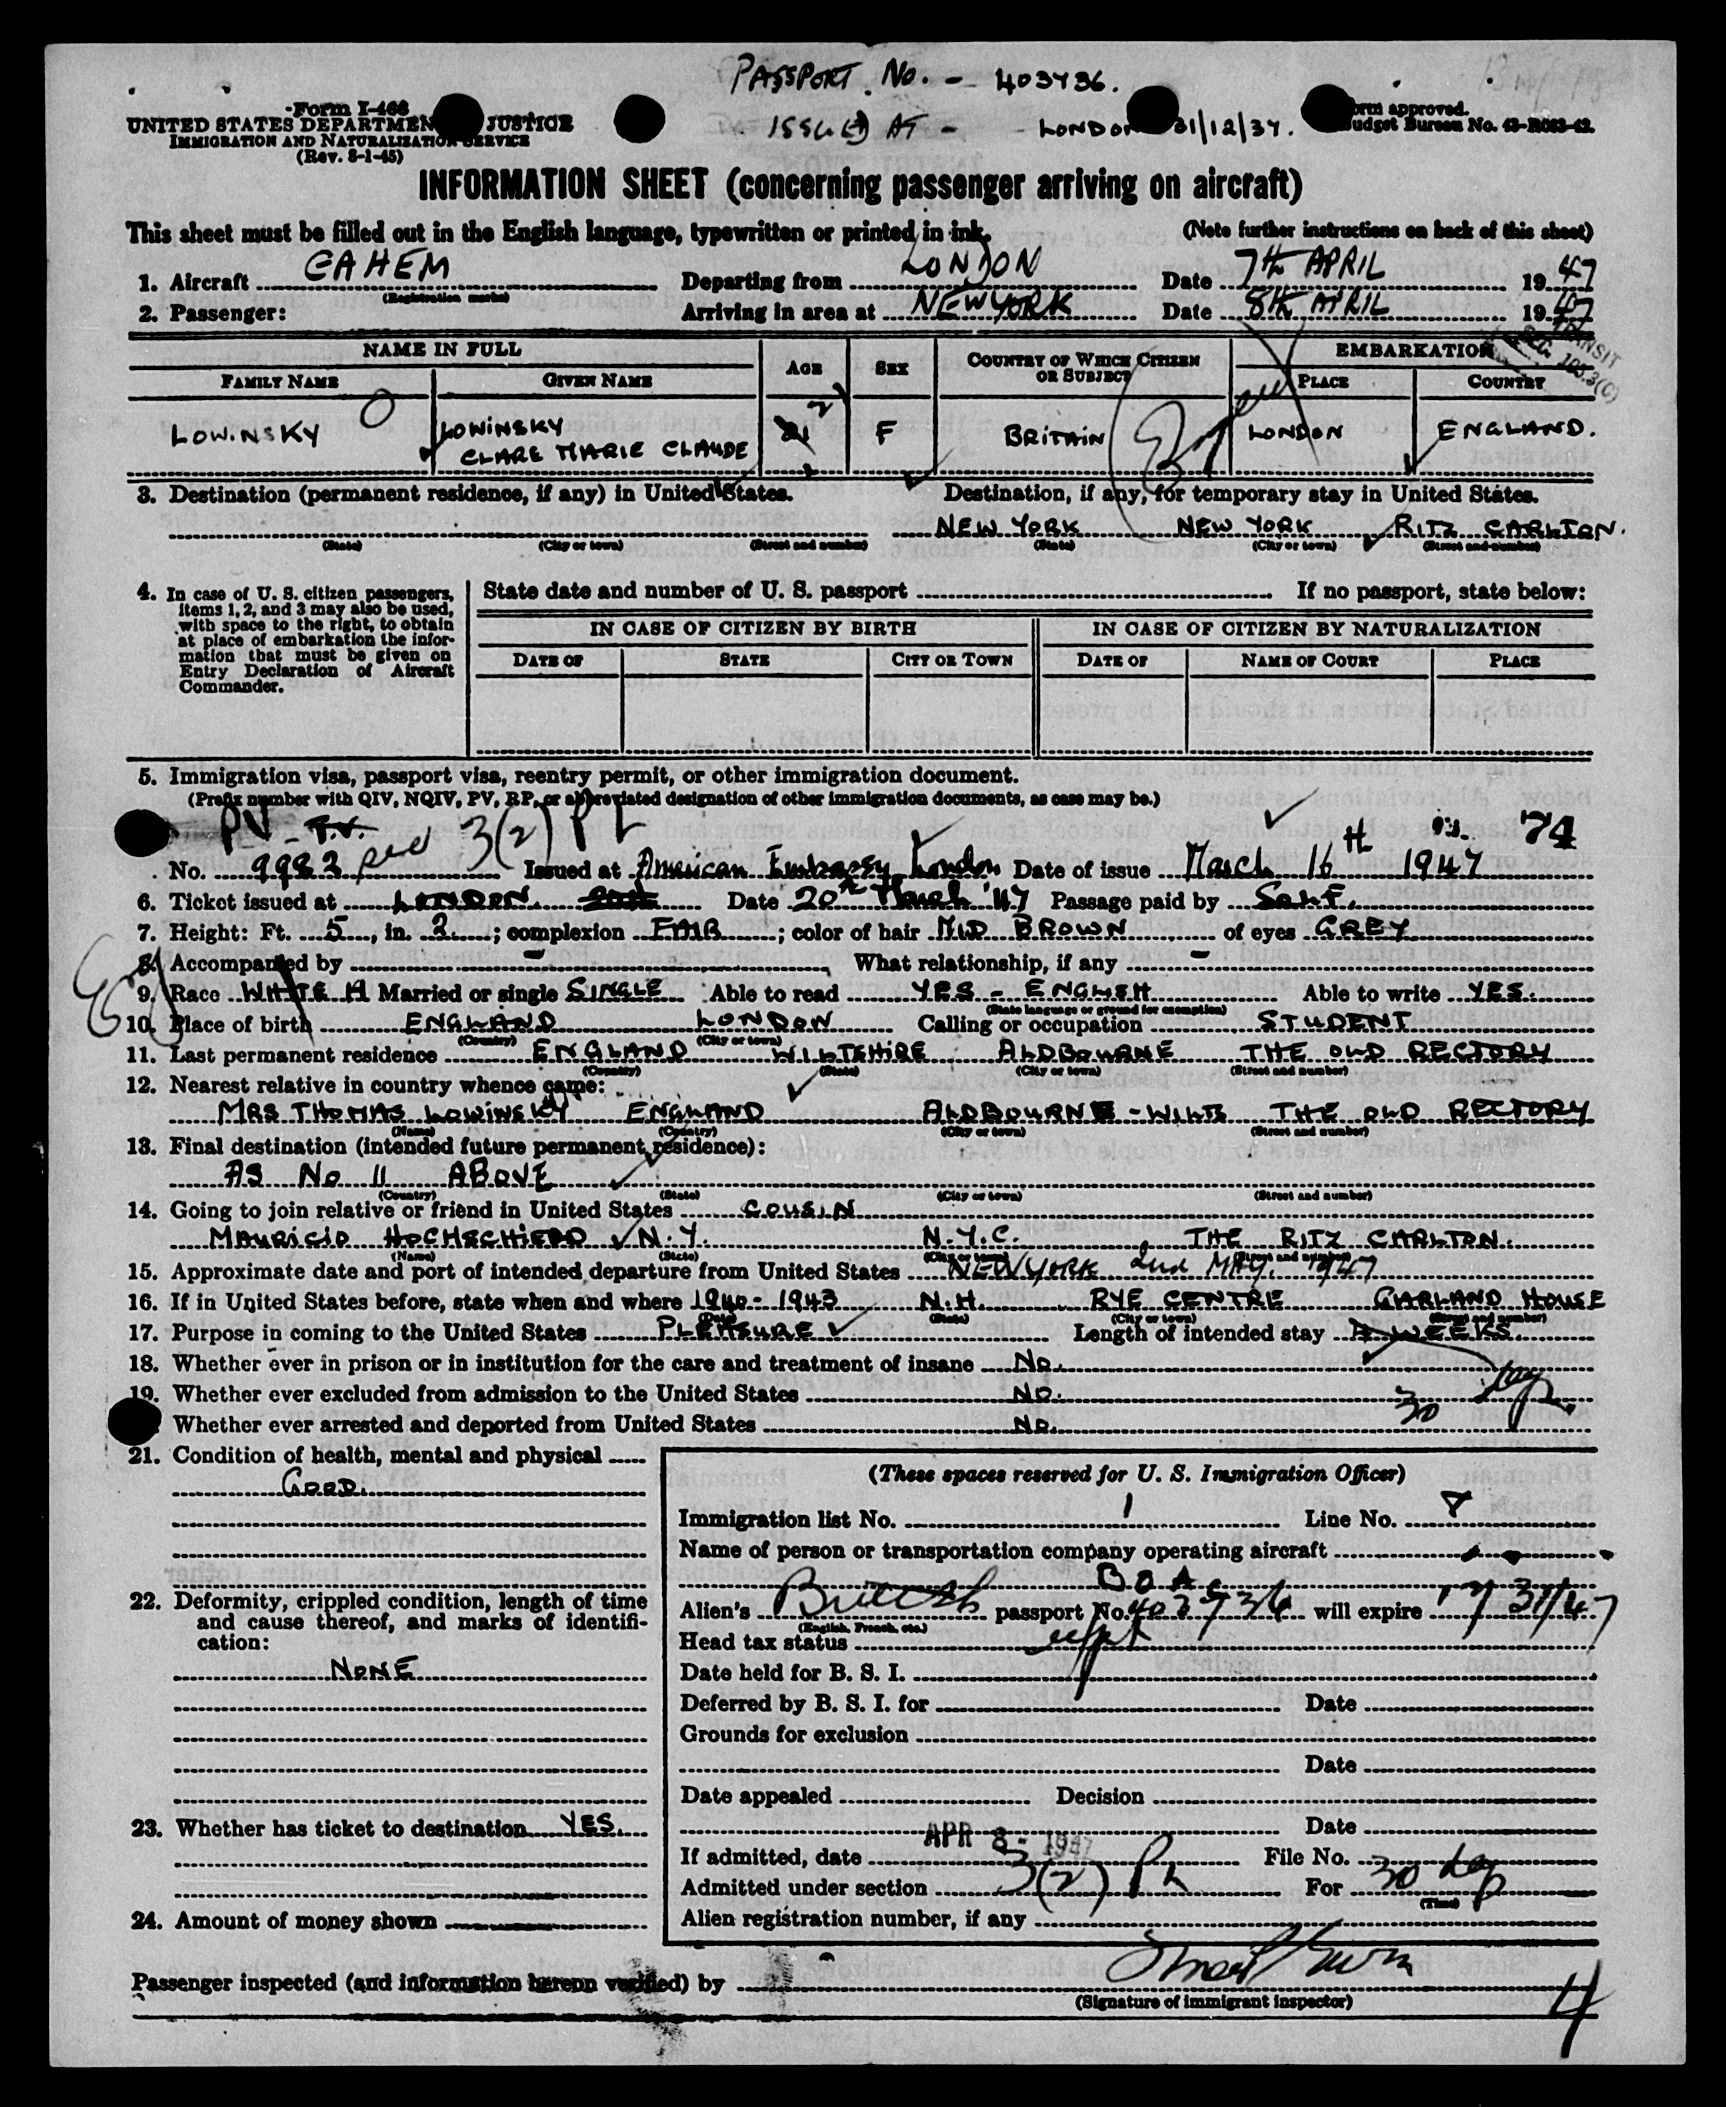 PASSPORT No. - 403736.
ISSUED AT - LONDON 31/12/37.
Form I-466
UNITED STATES DEPARTMENT JUSTICE
IMMIGRATION AND NATURALIZATION SERVICE
(Rev. 8-1-45)
Form approved.
Budget Bureau No. 43-R083-42.
INFORMATION SHEET (concerning passenger arriving on aircraft)
This sheet must be filled out in the English language, typewritten or printed in ink. (Note further instructions on back of this sheet)
1. Aircraft GAHEM Departing from LONDON Date 7th APRIL 1947
(Registration marks)
2. Passenger: Arriving in area at NEW YORK Date 8th APRIL 1947
TRANSIT
SEC. 105.3(C)
NAME IN FULL AGE SEX COUNTRY OF WHICH CITIZEN OR SUBJECT EMBARKATION
FAMILY NAME GIVEN NAME PLACE COUNTRY
LOWINSKY LOWINSKY CLARE MARIE CLAUDE 21 F BRITAIN LONDON ENGLAND.
3. Destination (permanent residence, if any) in United States. Destination, if any, for temporary stay in United States.
NEW YORK NEW YORK RITZ CARLTON.
(State) (City or town) (Street and number) (State) (City or town) (Street and number)
4. In case of U. S. citizen passengers, items 1, 2, and 3 may also be used, with space to the right, to obtain at place of embarkation the information that must be given on Entry Declaration of Aircraft Commander.
State date and number of U. S. passport If no passport, state below:
IN CASE OF CITIZEN BY BIRTH IN CASE OF CITIZEN BY NATURALIZATION
DATE OF STATE CITY OR TOWN DATE OF NAME OF COURT PLACE
5. Immigration visa, passport visa, reentry permit, or other immigration document.
(Prefix number with QIV, NQIV, PV, RP, or abbreviated designation of other immigration documents, as case may be.)
PV T.V. 3(2) 74
No. 9983 Issued at American Embassy London Date of issue March 16th 1947
6. Ticket issued at LONDON. Date 20th March '47 Passage paid by SELF.
7. Height: Ft. 5, in. 2; complexion FAIR; color of hair MID BROWN of eyes GREY
8. Accompanied by - What relationship, if any -
9. Race WHITE Married or single SINGLE Able to read YES - ENGLISH Able to write YES.
(State language or ground for exemption)
10. Place of birth ENGLAND LONDON Calling or occupation STUDENT
(Country) (City or town)
11. Last permanent residence ENGLAND WILTSHIRE ALDBOURNE THE OLD RECTORY
(Country) (State) (City or town) (Street and number)
12. Nearest relative in country whence came:
MRS THOMAS LOWINSKY ENGLAND ALDBOURNE - WILTS THE OLD RECTORY
(Name) (Country) (City or town) (Street and number)
13. Final destination (intended future permanent residence):
AS No 11 ABOVE
(Country) (State) (City or town) (Street and number)
14. Going to join relative or friend in United States COUSIN
MAURICIO HOCHSCHIELD N.Y. N.Y.C. THE RITZ CARLTON.
(Name) (State) (City or town) (Street and number)
15. Approximate date and port of intended departure from United States NEW YORK 2nd MAY. 1947
16. If in United States before, state when and where 1940 - 1943 N.H. RYE CENTRE GARLAND HOUSE
(Date) (State) (City or town) (Street and number)
17. Purpose in coming to the United States PLEASURE Length of intended stay 4 WEEKS.
18. Whether ever in prison or in institution for the care and treatment of insane No.
19. Whether ever excluded from admission to the United States No. 30 days
Whether ever arrested and deported from United States No.
21. Condition of health, mental and physical
GOOD.
22. Deformity, crippled condition, length of time and cause thereof, and marks of identification:
NONE
23. Whether has ticket to destination YES.
24. Amount of money shown
(These spaces reserved for U. S. Immigration Officer)
Immigration list No. 1 Line No. 8
Name of person or transportation company operating aircraft
B O A C
Alien's British passport No. 403736 will expire 12/31/47
(English, French, etc.)
Head tax status
Date held for B. S. I.
Deferred by B. S. I. for Date
Grounds for exclusion
Date
Date appealed Decision
Date
If admitted, date APR 8 - 1947 File No.
Admitted under section 3(2) For 30 days
(Time)
Alien registration number, if any
Passenger inspected (and information hereon verified) by
(Signature of immigrant inspector)
4